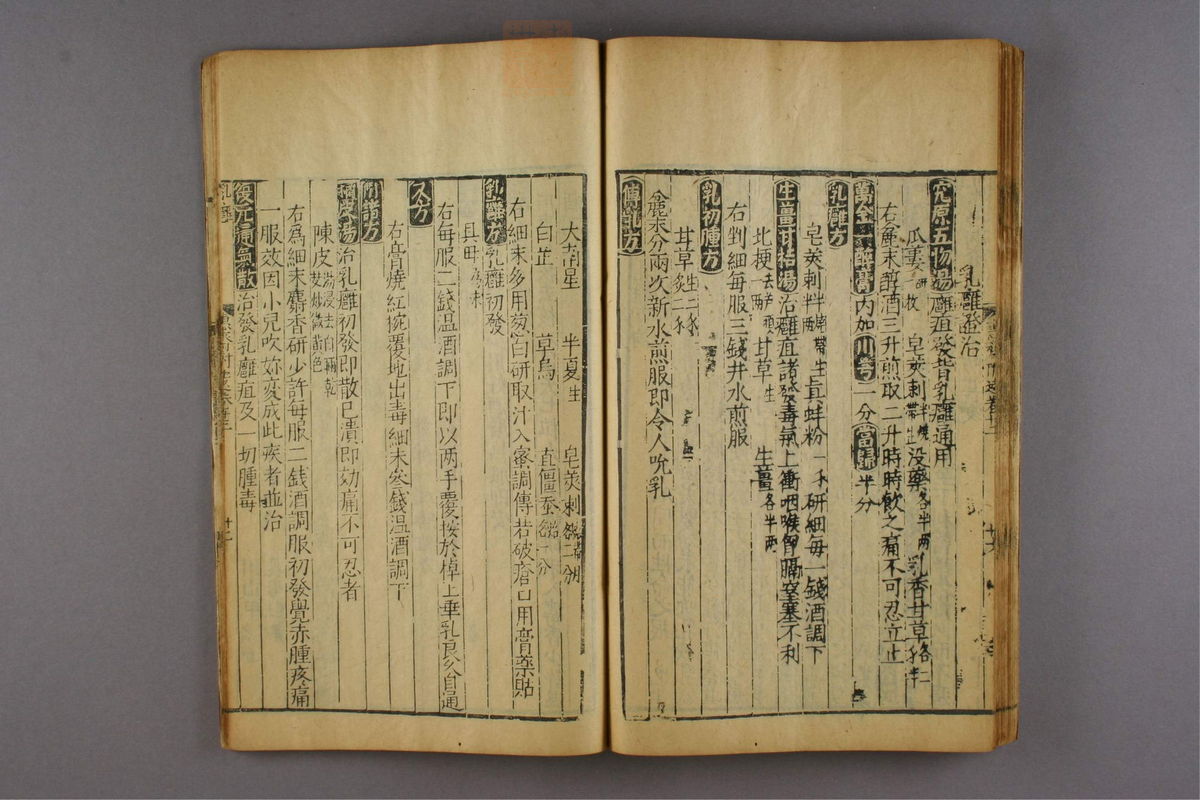 乳癰發治
究原五物湯癰疽發背乳癰通用
瓜蔞研一枚 皂莢刺半燒帶生 没藥各半兩 乳香甘草各二
右麄末醇酒三升煎取二升時時飲之痛不可忍立止
萬金一醉膏内加川芎一分當歸半分
乳癰方
皂莢刺半燒帶生半兩真蚌粉 研細每一錢酒調下
生薑甘桔湯治癰疽諸發毒氣上衝咽喉胷膈窒塞不利
北梗一兩去芦頭甘草生 生薑各半兩
右剉細每服三錢井水煎服
乳初腫方
甘草生二炙二
麄末分兩次新水煎服即令人吮乳
傅乳方
大南星 半夏生 皂莢刺二分
白芷 草烏 直僵蚕一分
右細末多用葱白研取汁入蜜調傅若破瘡口用膏藥貼
乳癰方乳癰初發
貝母為末
右每服二錢温酒調下即以两手覆按於棹上垂乳良久自通
又方
右膏燒紅椀覆地出毒細末叄錢温酒調下
橘皮湯治乳癰初發即散已潰即効痛不可忍者
陳皮湯浸去白晒乾麥炒微黄色
右為細末麝香研少許每服二錢酒調服初發覺赤腫疼痛
一服效因小兒吹妳變成此疾者並治
復元通氣散治發乳癰疽及一切腫毒